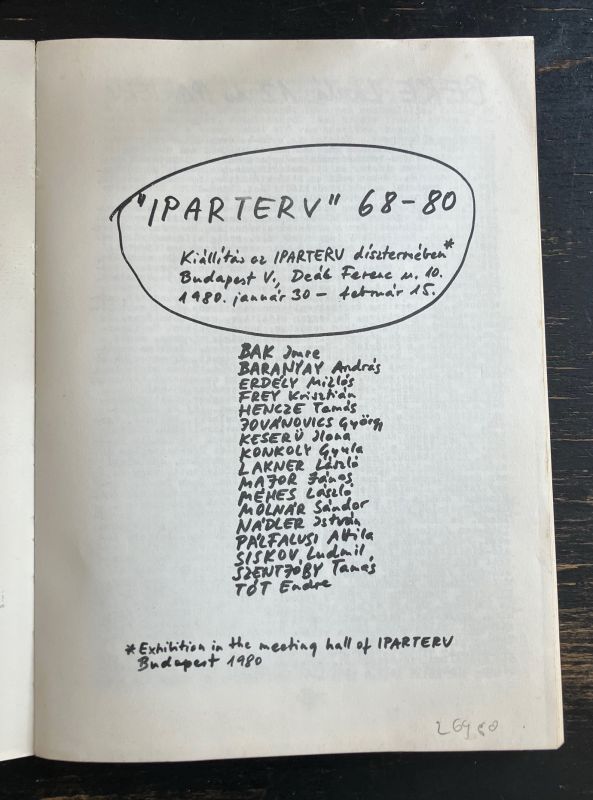 "IPARTERV" 68-80
Kiállítás az IPARTERV dísztermében*
Budapest V., Deák Ferenc u. 10.
1980. január 30 - február 15.
BAK Imre
BARANYAY András
ERDÉLY Miklós
FREY Krisztián
HENCZE Tamás
JOVÁNOVICS György
KESERÜ Ilona
KONKOLY Gyula
LAKNER László
MAJOR János
MÉHES László
MOLNÁR Sándor
NÁDLER István
PÁLFALUSI Attila
SISKOV Ludmil
SZENTJÓBY Tamás
TÓT Endre
*Exhibition in the meeting hall of IPARTERV
Budapest 1980